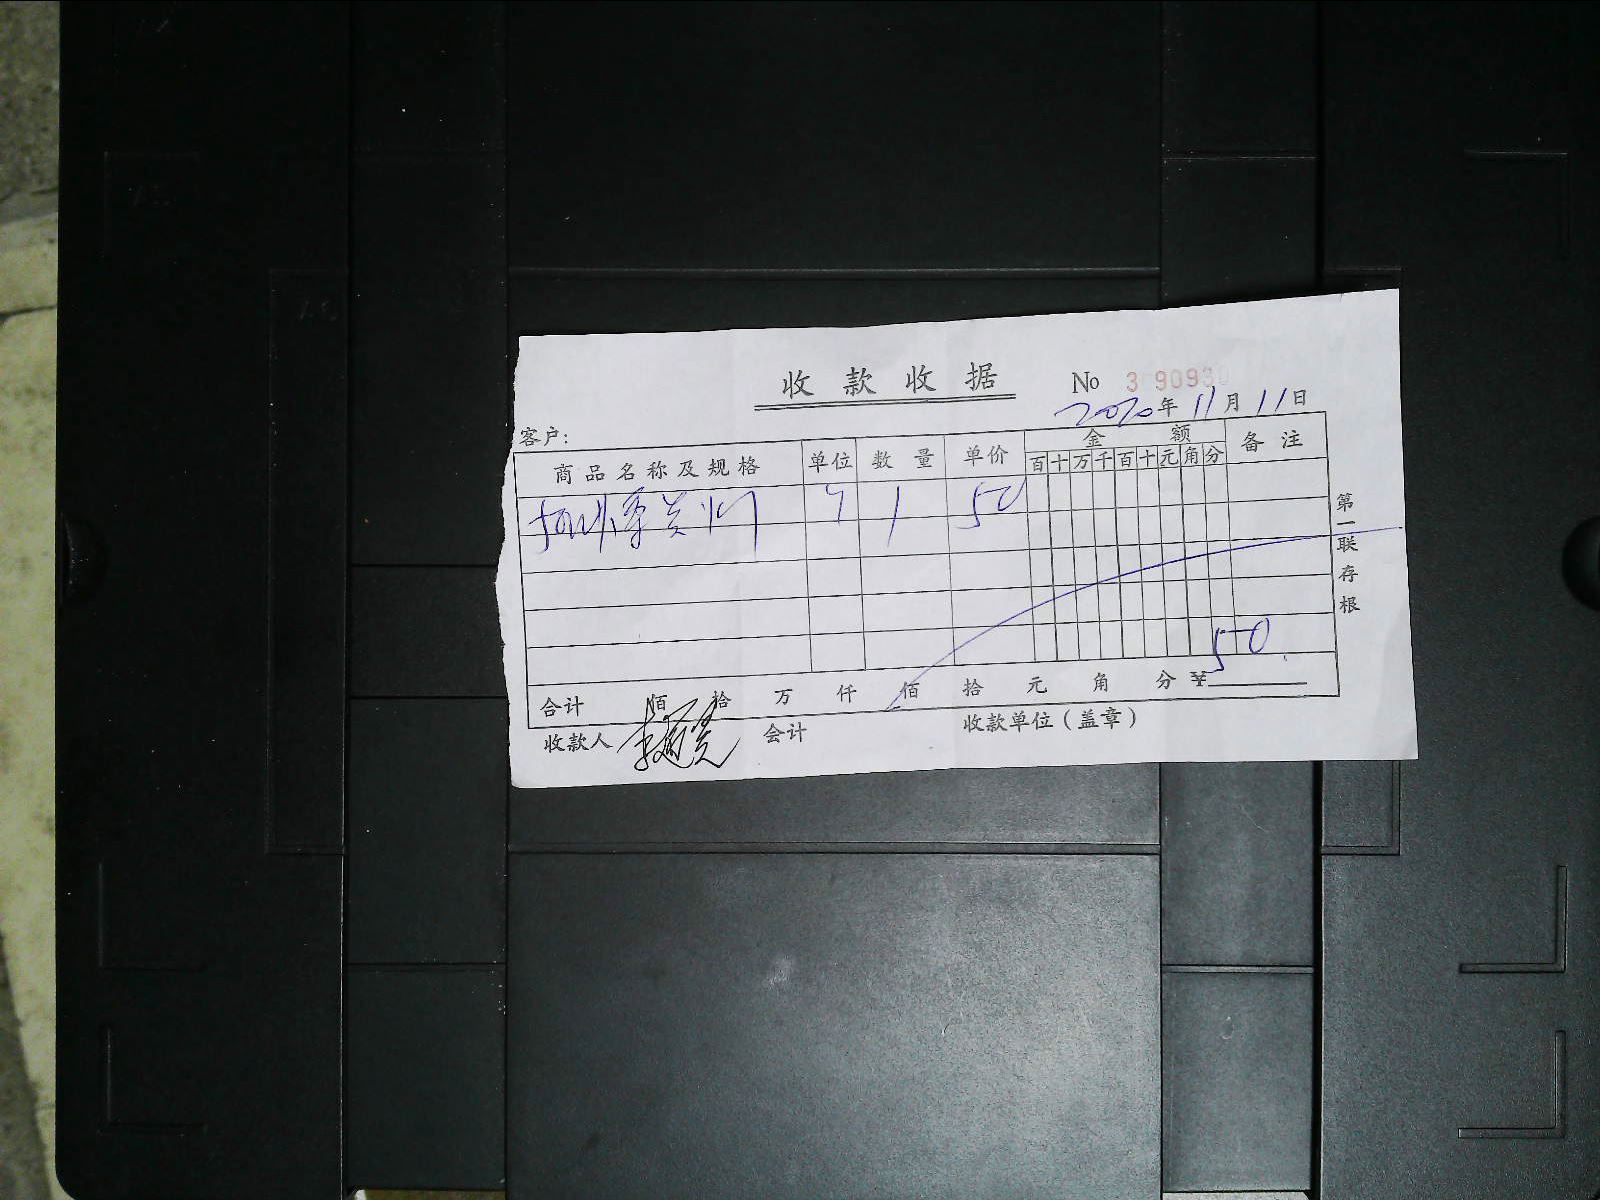 收款收据 No
2020年11月11日
客户:
商品名称及规格 单位 数量 单价 金额 备注
百十万千百十元角分
1 50
第一联存根
合计 佰 拾 万 仟 佰 拾 元 角 分 ¥ 50
收款人 会计 收款单位(盖章)